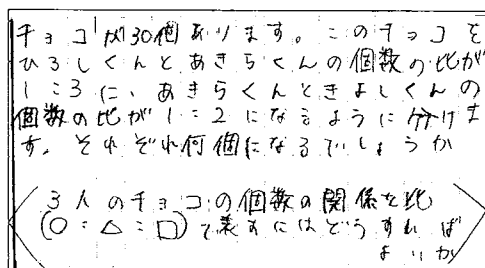 チョコが30個あります。このチョコを
ひろしくんとあきらくんの個数の比が
1:3に、あきらくんときよしくんの
個数の比が1:2になるように分けま
す。それぞれ何個になるでしょうか
3人のチョコの個数の関係を比
(○:△:□)で表すにはどうすれば
よいか